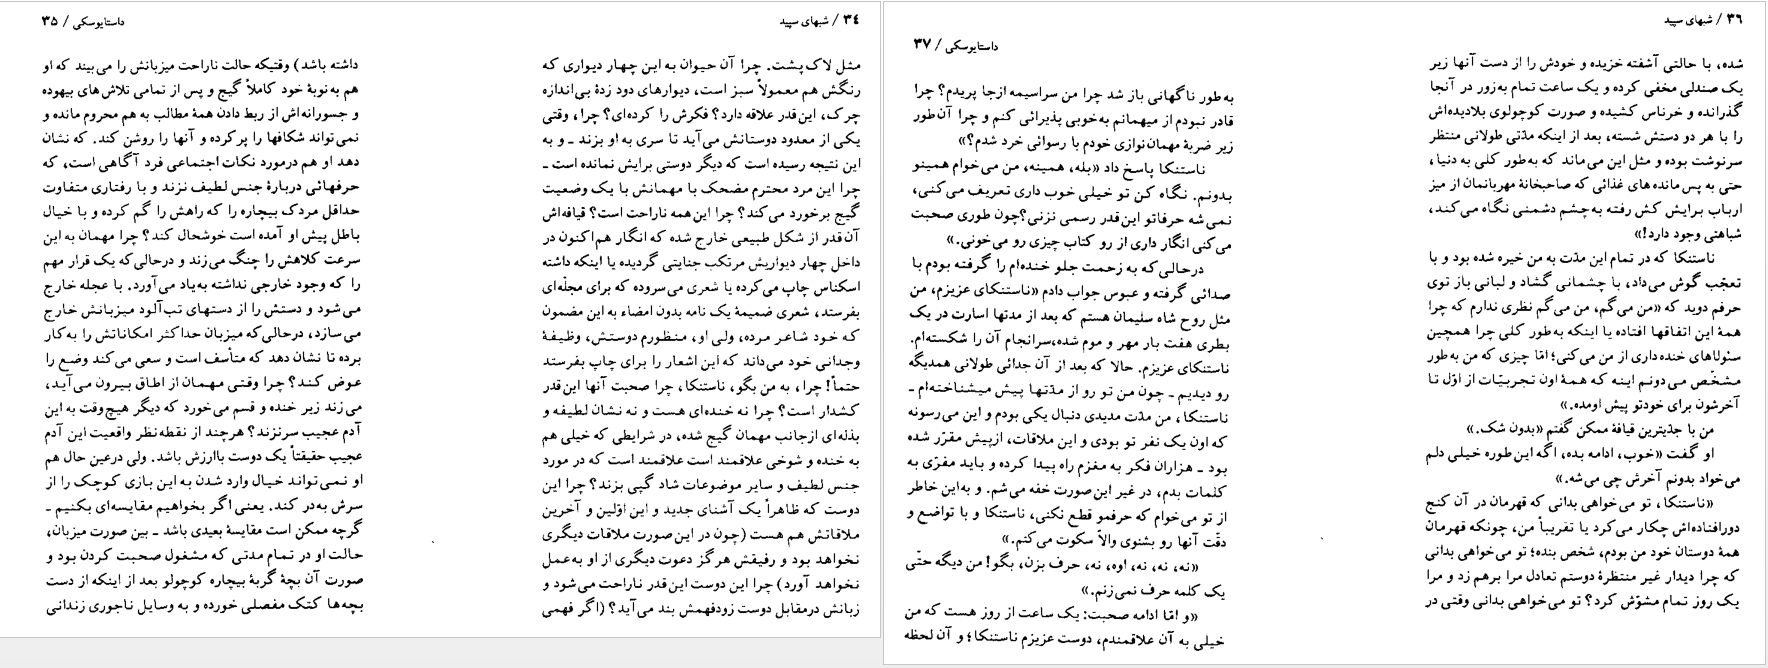 ۳۴ / شبهای سپید
مثل لاک‌پشت. چرا آن حیوان به این چهار دیواری که
رنگش هم معمولاً سبز است، دیوارهای دود زدهٔ بی‌اندازه
چرک، این‌قدر علاقه دارد؟ فکرش را کرده‌ای؟ چرا، وقتی
یکی از معدود دوستانش می‌آید تا سری به او بزند ـ و به
این نتیجه رسیده است که دیگر دوستی برایش نمانده است ـ
چرا این مرد محترم مضحک با مهمانش با یک وضعیت
گیج برخورد می‌کند؟ چرا این همه ناراحت است؟ قیافه‌اش
آن‌قدر از شکل طبیعی خارج شده که انگار هم‌اکنون در
داخل چهار دیواریش مرتکب جنایتی گردیده یا اینکه داشته
اسکناس چاپ می‌کرده یا شعری می‌سروده که برای مجلّه‌ای
بفرستد، شعری ضمیمهٔ یک نامه بدون امضاء به این مضمون
که خود شاعر مرده، ولی او، منظورم دوستش، وظیفهٔ
وجدانی خود می‌داند که این اشعار را برای چاپ بفرستد
حتماً! چرا، به من بگو، ناستنکا، چرا صحبت آنها این‌قدر
کشدار است؟ چرا نه خنده‌ای هست و نه نشان لطیفه و
بذله‌ای ازجانب مهمان گیج شده، در شرایطی که خیلی هم
به خنده و شوخی علاقمند است علاقمند است که در مورد
جنس لطیف و سایر موضوعات شاد گپی بزند؟ چرا این
دوست که ظاهراً یک آشنای جدید و این اوّلین و آخرین
ملاقاتش هم هست (چون در این‌صورت ملاقات دیگری
نخواهد بود و رفیقش هرگز دعوت دیگری از او به‌عمل
نخواهد آورد) چرا این دوست این‌قدر ناراحت می‌شود و
زبانش درمقابل دوست زودفهمش بند می‌آید؟ (اگر فهمی
داستایوسکی / ۳۵
داشته باشد) وقتیکه حالت ناراحت میزبانش را می‌بیند که او
هم به‌نوبهٔ خود کاملاً گیج و پس از تمامی تلاش‌های بیهوده
و جسورانه‌اش از ربط دادن همهٔ مطالب به هم محروم مانده و
نمی‌تواند شکافها را پرکرده و آنها را روشن کند. که نشان
دهد او هم درمورد نکات اجتماعی فرد آگاهی است، که
حرفهائی دربارهٔ جنس لطیف نزند و با رفتاری متفاوت
حداقل مردک بیچاره را که راهش را گم کرده و با خیال
باطل پیش او آمده است خوشحال کند؟ چرا مهمان به این
سرعت کلاهش را چنگ می‌زند و درحالی‌که یک قرار مهم
را که وجود خارجی نداشته به‌یاد می‌آورد. با عجله خارج
می‌شود و دستش را از دستهای تب‌آلود میزبانش خارج
می‌سازد، درحالی‌که میزبان حداکثر امکاناتش را به‌کار
برده تا نشان دهد که متأسف است و سعی می‌کند وضع را
عوض کند؟ چرا وقتی مهمان از اطاق بیرون می‌آید،
می‌زند زیر خنده و قسم می‌خورد که دیگر هیچ‌وقت به این
آدم عجیب سرنزند؟ هرچند از نقطه‌نظر واقعیت این آدم
عجیب حقیقتاً یک دوست باارزش باشد. ولی درعین حال هم
او نمی‌تواند خیال وارد شدن به این بازی کوچک را از
سرش به‌در کند. یعنی اگر بخواهیم مقایسه‌ای بکنیم ـ
گرچه ممکن است مقایسهٔ بعیدی باشد ـ بین صورت میزبان،
حالت او در تمام مدتی که مشغول صحبت کردن بود و
صورت آن بچهٔ گربهٔ بیچاره کوچولو بعد از اینکه از دست
بچه‌ها کتک مفصلی خورده و به وسایل ناجوری زندانی
۳۶ / شبهای سپید
شده، با حالتی آشفته خزیده و خودش را از دست آنها زیر
یک صندلی مخفی کرده و یک ساعت تمام به‌زور در آنجا
گذرانده و خرناس کشیده و صورت کوچولوی بلادیده‌اش
را با هر دو دستش شسته، بعد از اینکه مدّتی طولانی منتظر
سرنوشت بوده و مثل این می‌ماند که به‌طور کلی به دنیا،
حتی به پس‌مانده های غذائی که صاحبخانهٔ مهربانمان از میز
ارباب برایش کش رفته به‌چشم دشمنی نگاه می‌کند،
شباهتی وجود دارد!»
ناستنکا که در تمام این مدّت به من خیره شده بود و با
تعجّب گوش می‌داد، با چشمانی گشاد و لبانی باز توی
حرفم دوید که «من می‌گم، من می‌گم نظری ندارم که چرا
همهٔ این اتفاقها افتاده یا اینکه به‌طور کلی چرا همچین
سئوالهای خنده‌داری از من می‌کنی؛ امّا چیزی که من به‌طور
مشخّص می‌دونم اینه که همهٔ اون تجربیّات از اوّل تا
آخرشون برای خودتو پیش اومده.»
من با جدّیترین قیافهٔ ممکن گفتم «بدون شک.»
او گفت «خوب، ادامه بده، اگه این‌طوره خیلی دلم
می‌خواد بدونم آخرش چی می‌شه.»
«ناستنکا، تو می‌خواهی بدانی که قهرمان در آن کنج
دورافتاده‌اش چکار می‌کرد یا تقریباً من، چونکه قهرمان
همهٔ دوستان خود من بودم، شخص بنده؛ تو می‌خواهی بدانی
که چرا دیدار غیر منتظرهٔ دوستم تعادل مرا برهم زد و مرا
یک روز تمام مشوّش کرد؟ تو می‌خواهی بدانی وقتی در
داستایوسکی / ۳۷
به‌طور ناگهانی باز شد چرا من سراسیمه ازجا پریدم؟ چرا
قادر نبودم از میهمانم به‌خوبی پذیرائی کنم و چرا آن‌طور
زیر ضربهٔ مهمان‌نوازی خودم با رسوائی خرد شدم؟»
ناستنکا پاسخ داد «بله، همینه، من می‌خوام همینو
بدونم. نگاه کن تو خیلی خوب داری تعریف می‌کنی،
نمی‌شه حرفاتو این‌قدر رسمی نزنی؟چون طوری صحبت
می‌کنی انگار داری از رو کتاب چیزی رو می‌خونی.»
درحالی‌که به زحمت جلو خنده‌ام را گرفته بودم با
صدائی گرفته و عبوس جواب دادم «ناستنکای عزیزم، من
مثل روح شاه سلیمان هستم که بعد از مدتها اسارت در یک
بطری هفت بار مهر و موم شده،سرانجام آن را شکسته‌ام.
ناستنکای عزیزم. حالا که بعد از آن جدائی طولانی همدیگه
رو دیدیم ـ چون من تو رو از مدّتها پیش میشناخته‌ام ـ
ناستنکا، من مدّت مدیدی دنبال یکی بودم و این می‌رسونه
که اون یک نفر تو بودی و این ملاقات، ازپیش مقرّر شده
بود ـ هزاران فکر به مغزم راه پیدا کرده و باید مفرّی به
کلمات بدم، در غیر این‌صورت خفه می‌شم. و به‌این خاطر
از تو می‌خوام که حرفمو قطع نکنی، ناستنکا و با تواضع و
دقّت آنها رو بشنوی والاّ سکوت می‌کنم.»
«نه، نه، نه، اوه، نه، حرف بزن، بگو! من دیگه حتّی
یک کلمه حرف نمی‌زنم.»
«و امّا ادامه صحبت: یک ساعت از روز هست که من
خیلی به آن علاقمندم، دوست عزیزم ناستنکا؛ و آن لحظه